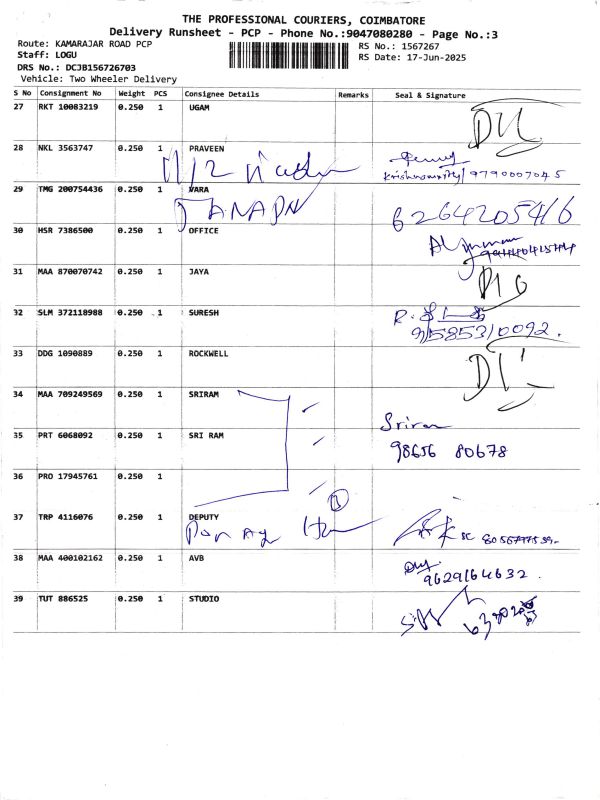 THE PROFESSIONAL COURIERS, COIMBATORE
Delivery Runsheet - PCP - Phone No.:9047080280 - Page No.:3
Route: KAMARAJAR ROAD PCP
Staff: LOGU
DRS No.: DCJB156726703
Vehicle: Two Wheeler Delivery
RS No.: 1567267
RS Date: 17-Jun-2025
S No Consignment No Weight PCS Consignee Details Remarks Seal & Signature
27 RKT 10083219 0.250 1 UGAM
28 NKL 3563747 0.250 1 PRAVEEN
9790007045
29 TMG 200754436 0.250 1 VARA
6264205416
30 HSR 7386500 0.250 1 OFFICE
31 MAA 870070742 0.250 1 JAYA
32 SLM 372118988 0.250 1 SURESH
9585310092.
33 DDG 1090889 0.250 1 ROCKWELL
34 MAA 709249569 0.250 1 SRIRAM
Sriram
35 PRT 6068092 0.250 1 SRI RAM
98656 80678
36 PRO 17945761 0.250 1
37 TRP 4116076 0.250 1 DEPUTY
38 MAA 400102162 0.250 1 AVB
9629164632.
39 TUT 886525 0.250 1 STUDIO